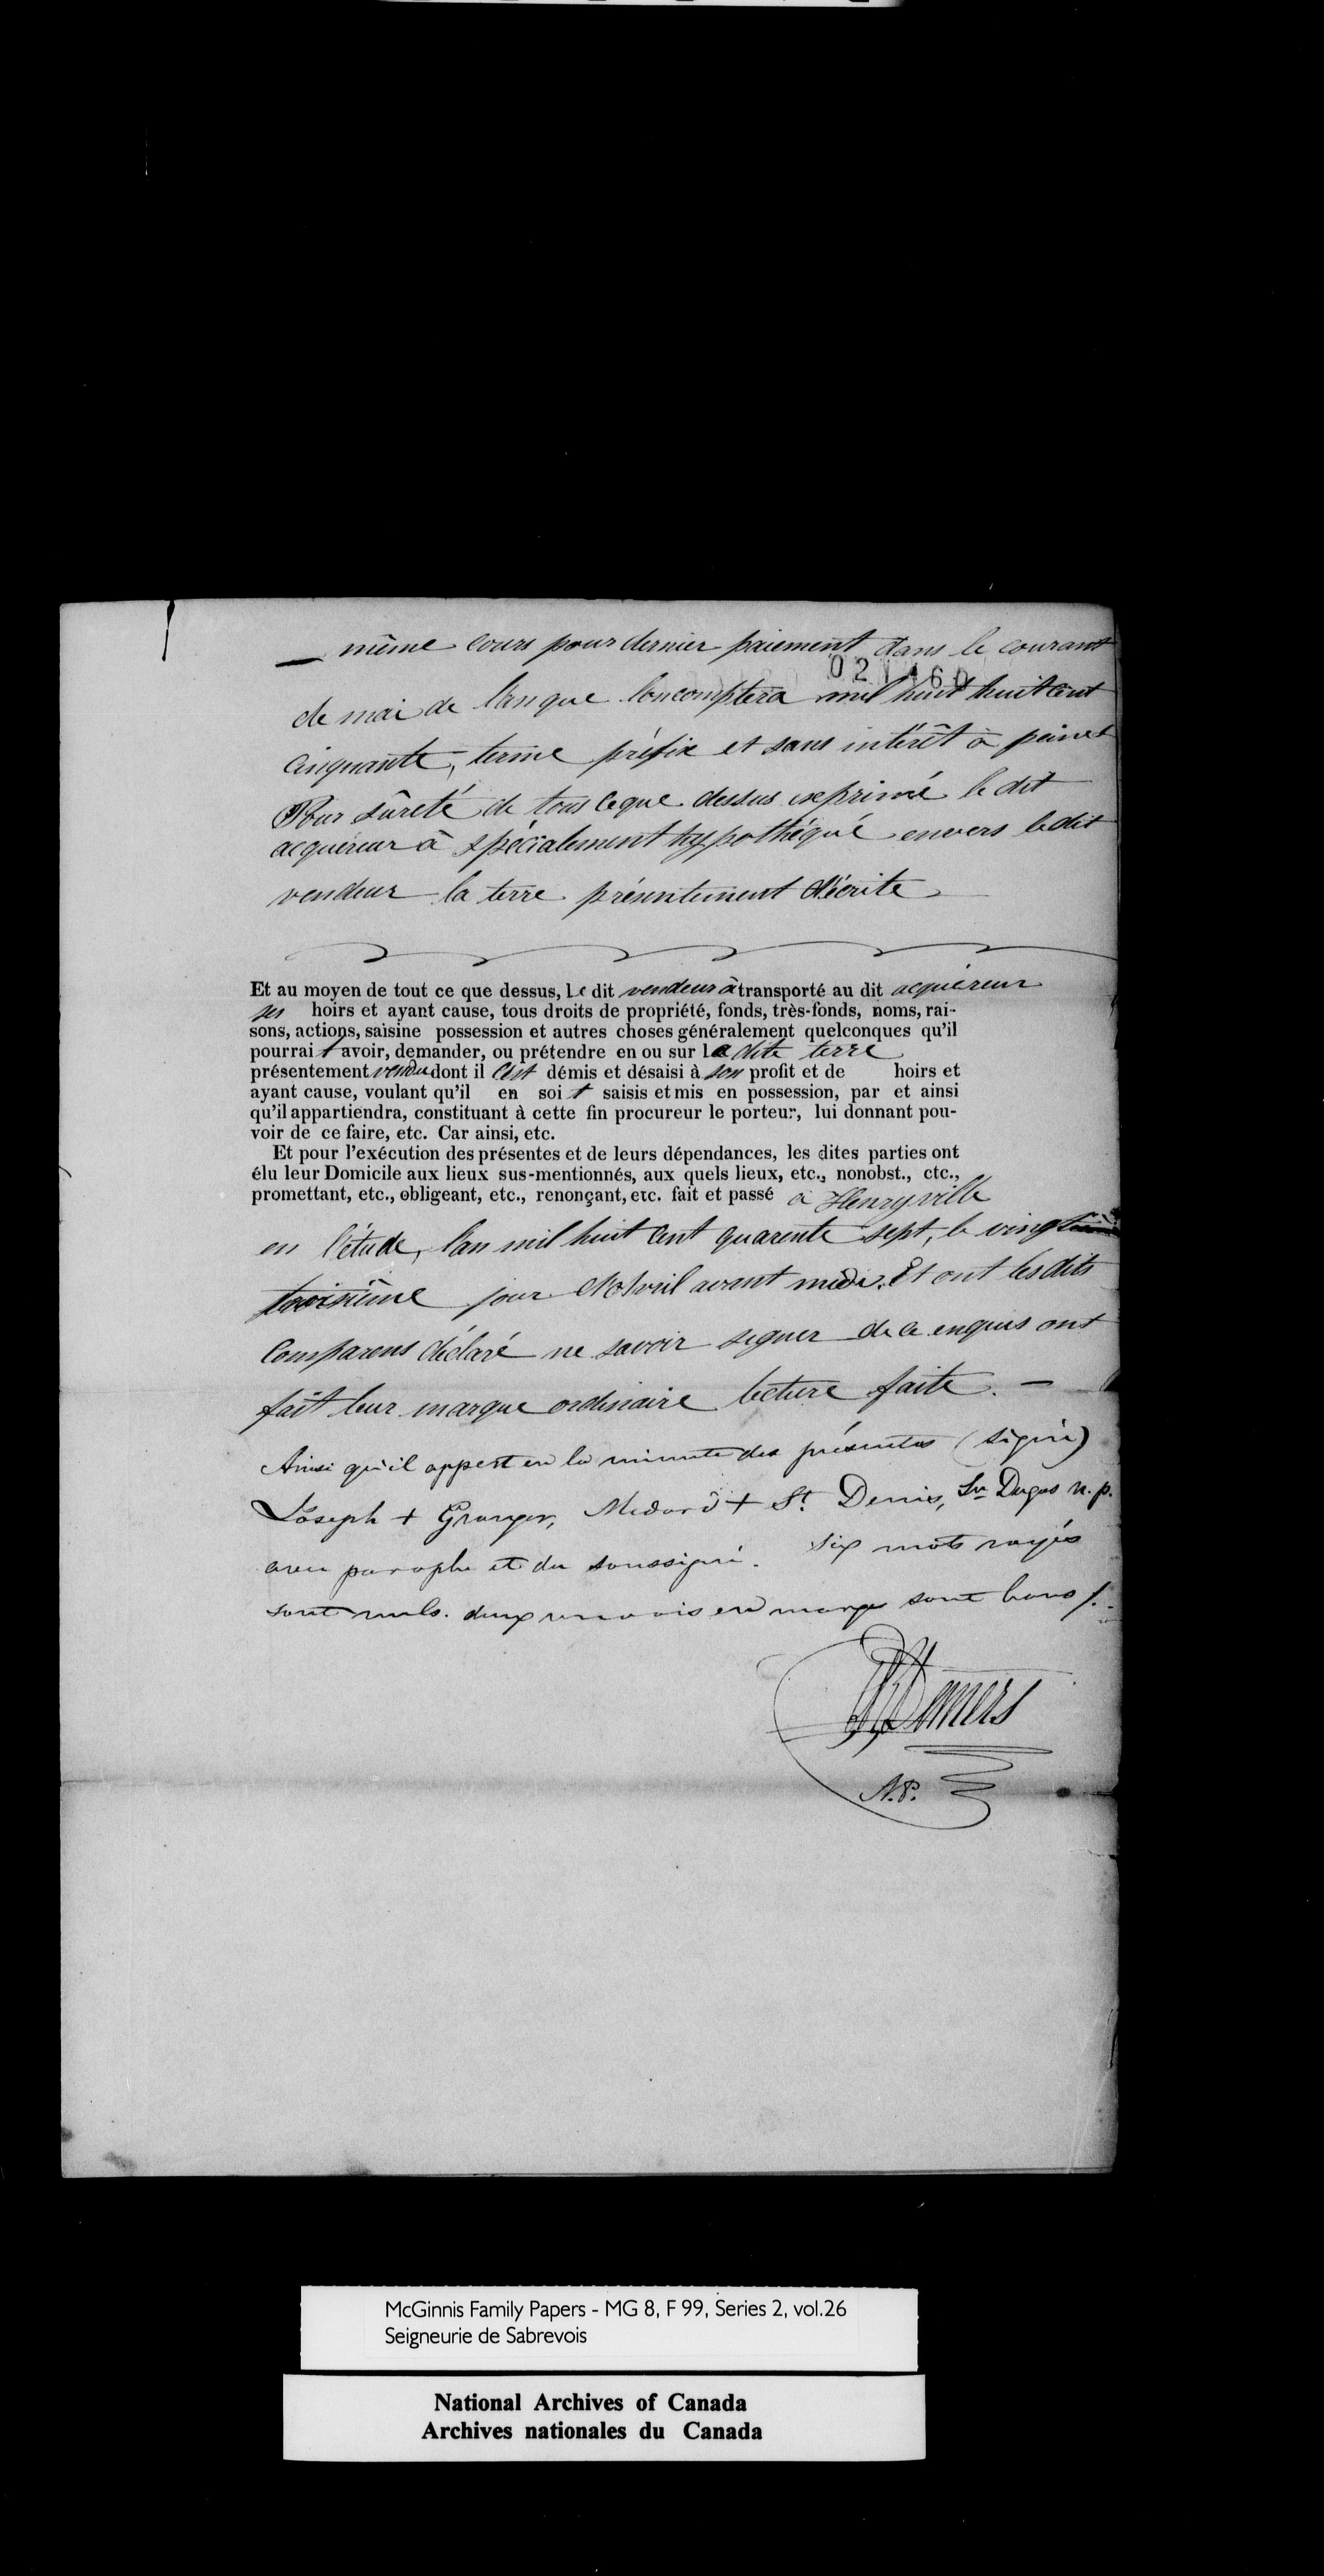 même cours pour dernier paiement dans le courant
021160
de mai de l'an que l'on comptera mil huit huit cent
cinquante, terme préfix et sans intérêt à peine
Pour sûreté de tous ce que dessus exprimé le dit
acquéreur à spécialement hypothéqué envers le dit
vendeur la terre présentement décrite
Et au moyen de tout ce que dessus, Le dit vendeur à transporté au dit acquéreur
ses hoirs et ayant cause, tous droits de propriété, fonds, très-fonds, noms, rai-
sons, actions, saisine possession et autres choses généralement quelconques qu'il
pourrait avoir, demander, ou prétendre en ou sur la dite terre
présentement vendu dont il c'est démis et désaisi à son profit et de hoirs et
ayant cause, voulant qu'il en soit saisis et mis en possession, par et ainsi
qu'il appartiendra, constituant à cette fin procureur le porteur, lui donnant pou-
voir de ce faire, etc. Car ainsi, etc.
Et pour l'exécution des présentes et de leurs dépendances, les dites parties ont
élu leur Domicile aux lieux sus-mentionnés, aux quels lieux, etc., nonobst., etc.,
promettant, etc., obligeant, etc., renonçant, etc. fait et passé à Henryville
en l'étude, l'an mil huit cent quarente sept, le vingt
troisième jour d'Avril avant midi. Et ont les dits
Comparens déclaré ne savoir signer de ce enquis ont
fait leur marque ordinaire lecture faite. —
Ainsi qu'il appert en la minute des présentes (signé)
Joseph + Granger, Medard + St. Denis, Sn Dugas n.p.
avec paraphe et du soussigné. Six mots rayés
sont nuls. deux renvois en marge sont bons /.
Demers
N.P.
McGinnis Family Papers - MG 8, F 99, Series 2, vol.26
Seigneurie de Sabrevois
National Archives of Canada
Archives nationales du Canada